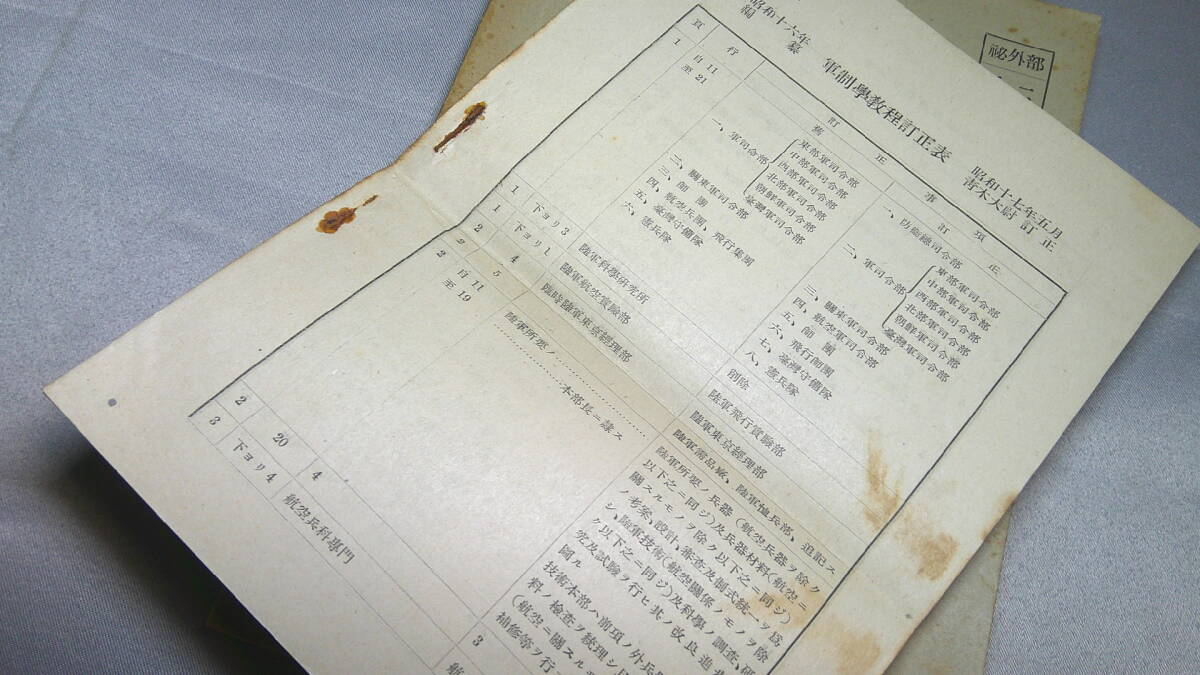 祕外部
昭和十六年
編纂
軍制學教程訂正表
昭和十七年五月
靑木大尉訂正
頁
行
訂正事項
舊
訂正
1
自11
至21
一、軍司令部
東部軍司令部
中部軍司令部
西部軍司令部
北部軍司令部
朝鮮軍司令部
臺灣軍司令部
二、關東軍司令部
三、師團
四、航空兵團、飛行集團
五、臺灣守備隊
六、憲兵隊
一、防衞總司令部
二、軍司令部
東部軍司令部
中部軍司令部
西部軍司令部
北部軍司令部
朝鮮軍司令部
臺灣軍司令部
三、關東軍司令部
四、航空軍司令部
五、師團
六、飛行師團
七、臺灣守備隊
八、憲兵隊
1
下ヨリ3
陸軍科學硏究所
削除
1
下ヨリ1
陸軍航空實驗部
陸軍飛行實驗部
2
4
臨時陸軍東京經理部
陸軍東京經理部
2
5
陸軍需品廠、陸軍恤兵部、追記ス
2
自11
至19
陸軍所要ノ……………本部長ニ隷ス
陸軍所要ノ兵器(航空兵器ヲ除ク
以下之ニ同ジ)及兵器材料(航空ニ
關スルモノヲ除ク以下之ニ同ジ)
ノ考案、設計、審査及制式統一ヲ爲
シ、陸軍技術(航空關係ノモノヲ除
ク以下之ニ同ジ)及科學ノ調査、硏
究及試驗ヲ行ヒ其ノ改良進步
圖ル
技術本部ハ前項ノ外兵
料ノ檢査ヲ統理シ
(航空ニ關スルモ
補修等ヲ行
2
20
4
3
3
下ヨリ4
航空兵科專門
航